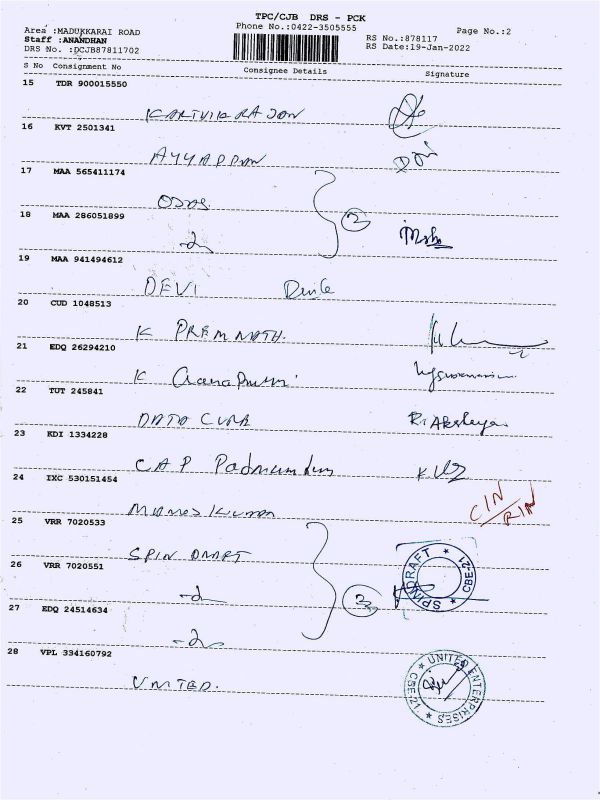 TPC/CJB DRS - PCK
Area :MADUKKARAI ROAD Phone No.:0422-3505555 Page No.:2
Staff :ANANDHAN RS No.:878117
DRS No. :DCJB87811702 RS Date:19-Jan-2022
S No Consignment No Consignee Details Signature
15 TDR 900015550
KARTHIK RAJAN
16 KVT 2501341
AYYAPPAN
17 MAA 565411174
2
18 MAA 286051899
19 MAA 941494612
DEVI
20 CUD 1048513
K PREM NATH.
21 EDQ 26294210
K
22 TUT 245841
DATA CURA R. Akshaya
23 KDI 1334228
CAP
24 IXC 530151454
CIN/RIN
25 VRR 7020533
SPIN DRAFT
26 VRR 7020551
SPINDRAFT ★ CBE-21 ★
3
27 EDQ 24514634
28 VPL 334160792
UNITED.
★ UNITED ENTERPRISES ★ CBE-21